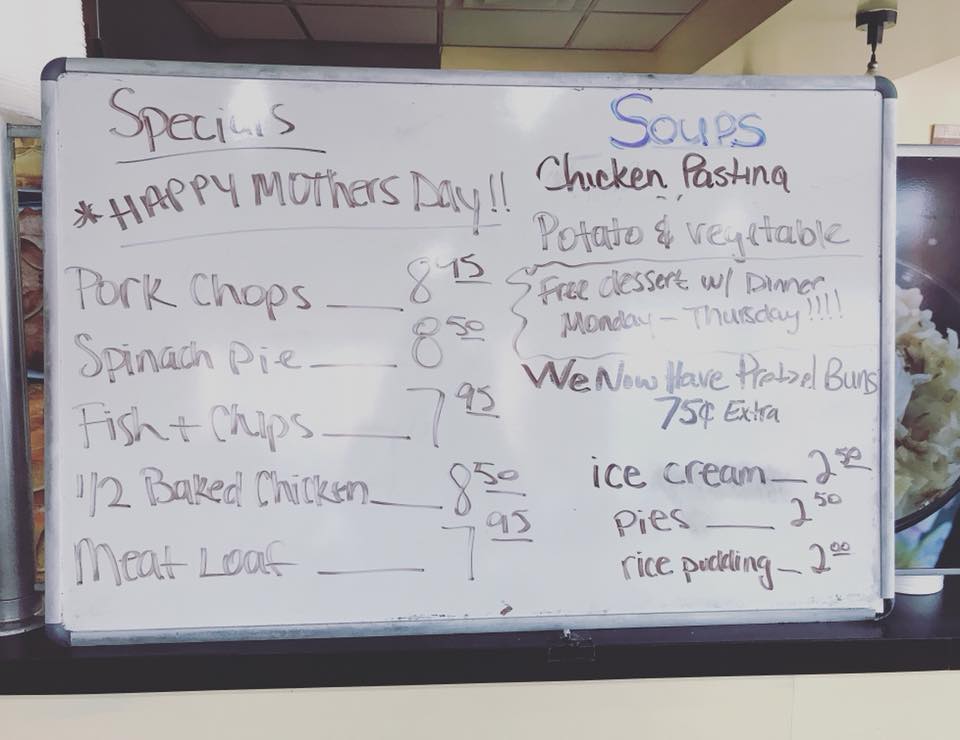 Specials
*HAPPY MOTHERS DAY!!
Pork Chops ___ 8 95
Spinach Pie ___ 8 50
Fish + Chips ___ 7 95
1/2 Baked Chicken ___ 8 50
Meat Loaf ___ 7 95
Soups
Chicken Pastina
Potato & vegetable
Free dessert w/ Dinner
Monday - Thursday!!!!
We Now Have Pretzel Buns
75¢ Extra
ice cream _ 2 50
pies ___ 2 50
rice pudding _ 2 00